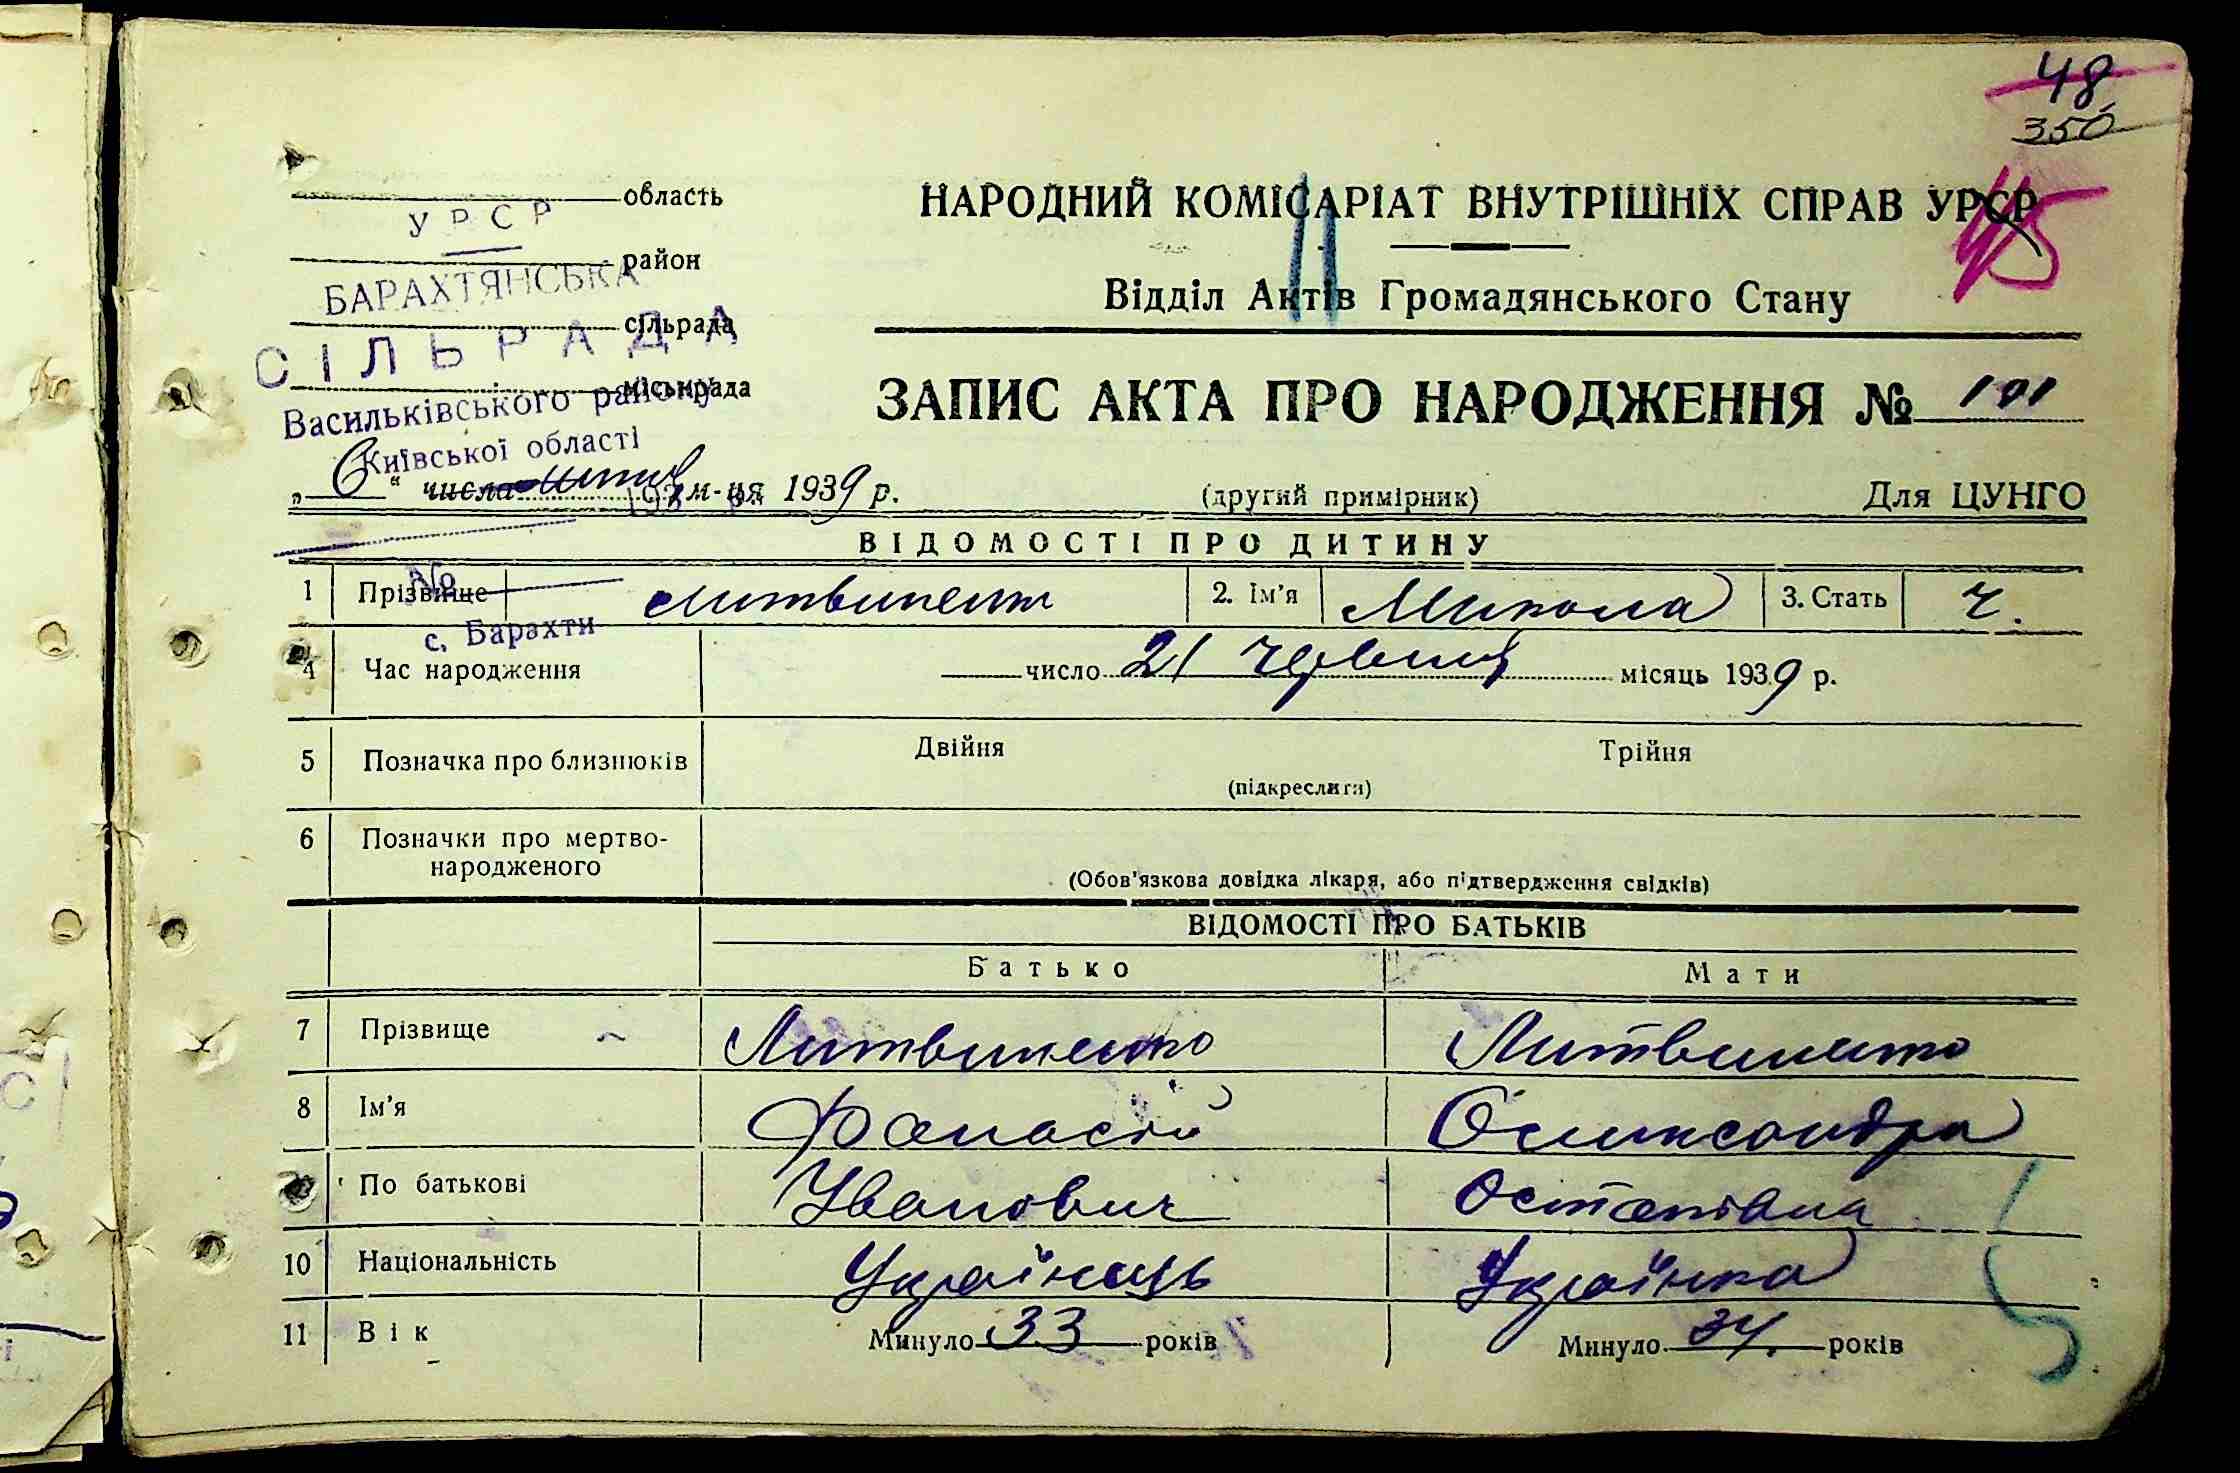 48
350
область
НАРОДНИЙ КОМІСАРІАТ ВНУТРІШНІХ СПРАВ УРСР
45
У Р С Р
район
БАРАХТЯНСЬКА
Відділ Актів Громадянського Стану
сільрада
СІЛЬРАДА
міськрада
Васильківського району
ЗАПИС АКТА ПРО НАРОДЖЕННЯ № 101
Київської області
„6“ числа липня м-ця 1939 р.
(другий примірник)
Для ЦУНГО
ВІДОМОСТІ ПРО ДИТИНУ
№
1 Прізвище Литвиненко 2. Ім'я Микола 3. Стать ч.
с. Барахти
4 Час народження число 21 червня місяць 1939 р.
5 Позначка про близнюків Двійня Трійня
(підкреслити)
6 Позначки про мертво-
народженого
(Обов'язкова довідка лікаря, або підтвердження свідків)
ВІДОМОСТІ ПРО БАТЬКІВ
Батько Мати
7 Прізвище Литвиненко Литвиненко
8 Ім'я Фанасій Олександра
9 По батькові Іванович Остапівна
10 Національність Українець Українка
11 Вік Минуло 33 років Минуло 34 років